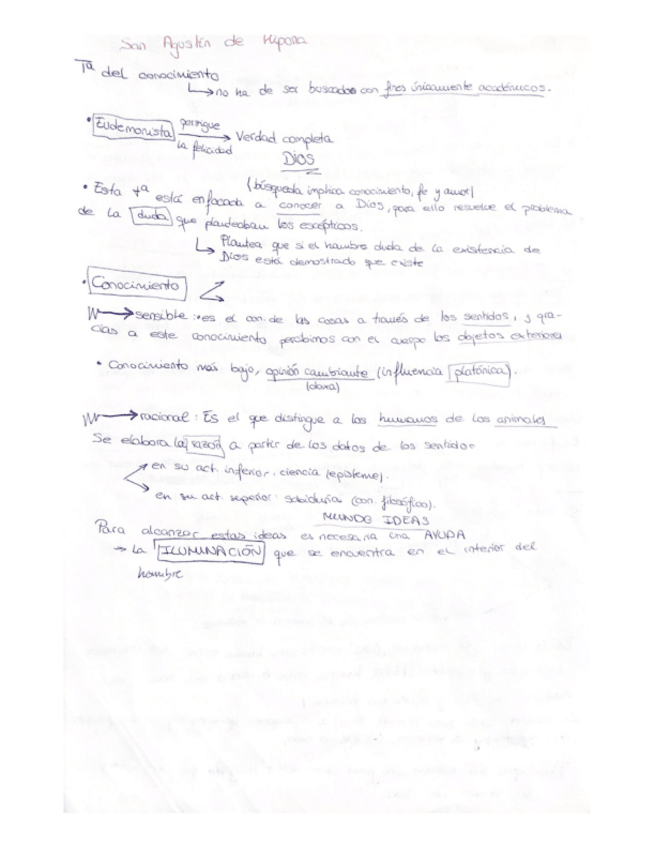 San Agustín de Hipona
Tª del conocimiento
no ha de ser buscados con fines únicamente académicos.
• Eudemonista persigue la felicidad → Verdad completa
DIOS
(búsqueda implica conocimiento, fe y amor)
• Esta tª está enfocada a conocer a Dios, para ello resuelve el problema
de la duda que planteaban los escépticos.
↳ Plantea que si el hombre duda de la existencia de
Dios está demostrado que existe
• Conocimiento
→ sensible: • es el con. de las cosas a través de los sentidos, y gra-
cias a este conocimiento percibimos con el cuerpo los objetos exteriores
• Conocimiento más bajo, opinión cambiante (influencia platónica).
(doxa)
→ racional: Es el que distingue a los humanos de los animales
Se elabora la razón a partir de los datos de los sentidos
en su act. inferior: ciencia (episteme).
en su act. superior: sabiduría (con. filosófico).
MUNDO IDEAS
Para alcanzar estas ideas es necesaria una AYUDA
→ La ILUMINACIÓN que se encuentra en el interior del
hombre